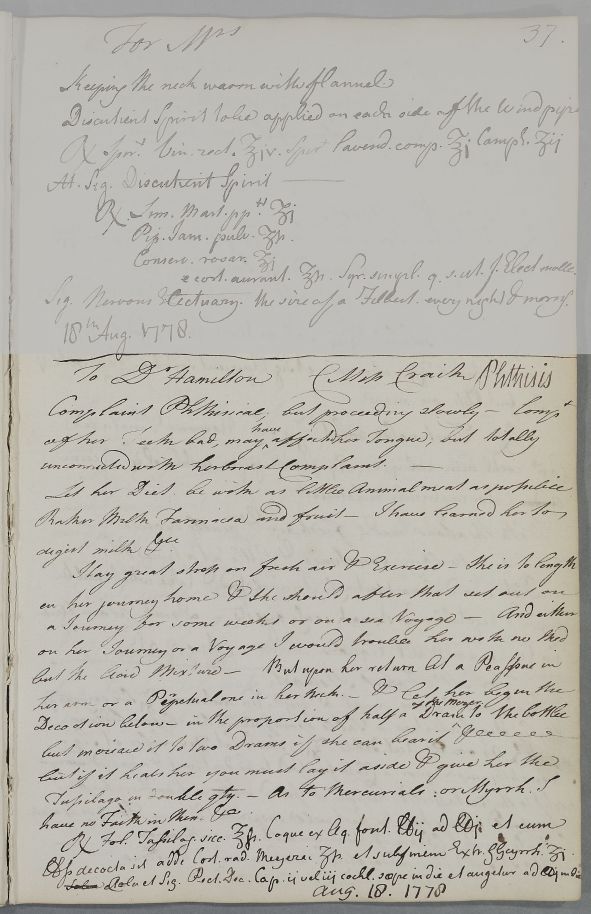 For Mrs 37.
Keeping the neck warm with flannel
Discutient Spirit to be applied on each side of the Wind pipe
℞ Spir.t Vin. rect. ℥iv. Spir.t Lavend. comp. ℥j Camph. ʒij
M. Sig. Discutient Spirit
℞. Lim. Mart. pp.t ʒj
Pip. Jam. pulv. ʒſs.
Conserv. rosar. ℥j
cort. aurant. ℥ſs. Syr. simpl. q. s. ut f. Elect. molle.
Sig. Nervous Electuary. the size of a Filbert. every night & morng.
18th Aug. 1778.
To Dr Hamilton (Miss Craik Phthisis
Complaint Phthisical, but proceeding slowly — Comp.t
of her Teeth bad, may have affected her Tongue, but totally
unconnected with her breast Complaint. —
Let her Diet be with as little Animal meat as possible
Rather Milk Farinacea and fruit — I have learned her to
digest milk &cc
I lay great stress on fresh air & Exercise — She is to length
en her journey home & she should after that set out on
a Journey for some weeks or on a sea Voyage — And either
on her Journey or a Voyage I would trouble her with no Med
but the Acid Mixture — But upon her return Let a Pea Issue in
her arm or a Perpetual one in her Neck. — & Let her begin the
Decoction below — in the proportion of half a Dram of the Mezer. to the bottle
but increase it to two Drams if she can bear it
but if it heats her you must lay it aside & give her the
Tussilago in double qty — As to Mercurials or Myrrh. I
have no Faith in them &c.
℞ Fol. Tussilag. sicc. ℥ſs. Coque ex Aq. font. ℔ij ad ℔j et cum
decocta sit adde Cort. rad. Mezerei ʒſs et sub finem Extr. Glycyrrh. ʒj
Cola et Sig. Pect. Dec. Cap. ij vel iij cochl. sæpe in die et augetur ad ℔j in die
Aug. 18. 1778